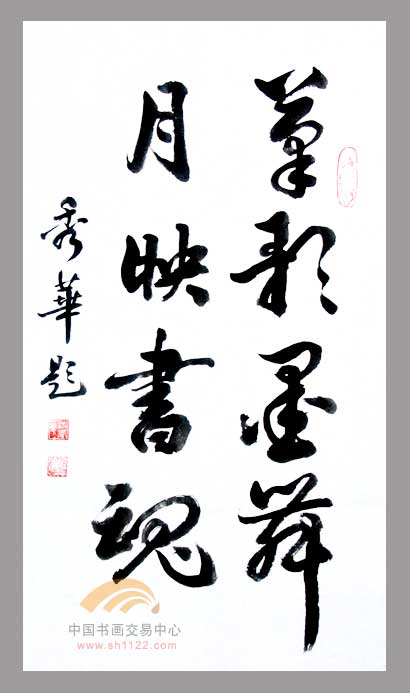 筆歌墨舞
月映書魂
秀華題
中国书画交易中心
www.sh1122.com